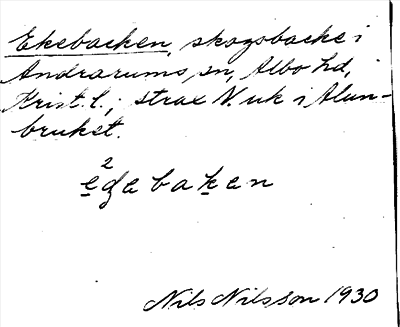 Ekebacken, skogsbacke i
Andrarums sn, Albo hd,
Krist. l.; strax N. uk i Alun-
bruket.
e²gebaken
Nils Nilsson 1930